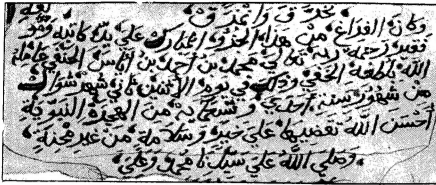 وكان الفراغ من هذا الجزء المبارك على يد كاتبه
رحمة ربه تعالى محمد بن أحمد بن إياس الحنفي عامله
الله بلطفه الخفي وذلك في يوم الاثنين ثاني شهر شوال
من شهور سنة احدى وتسعماية من الهجرة النبوية
أحسن الله تقضيها على خير وسلامة من غير محنة
وصلى الله على سيدنا محمد وعلى